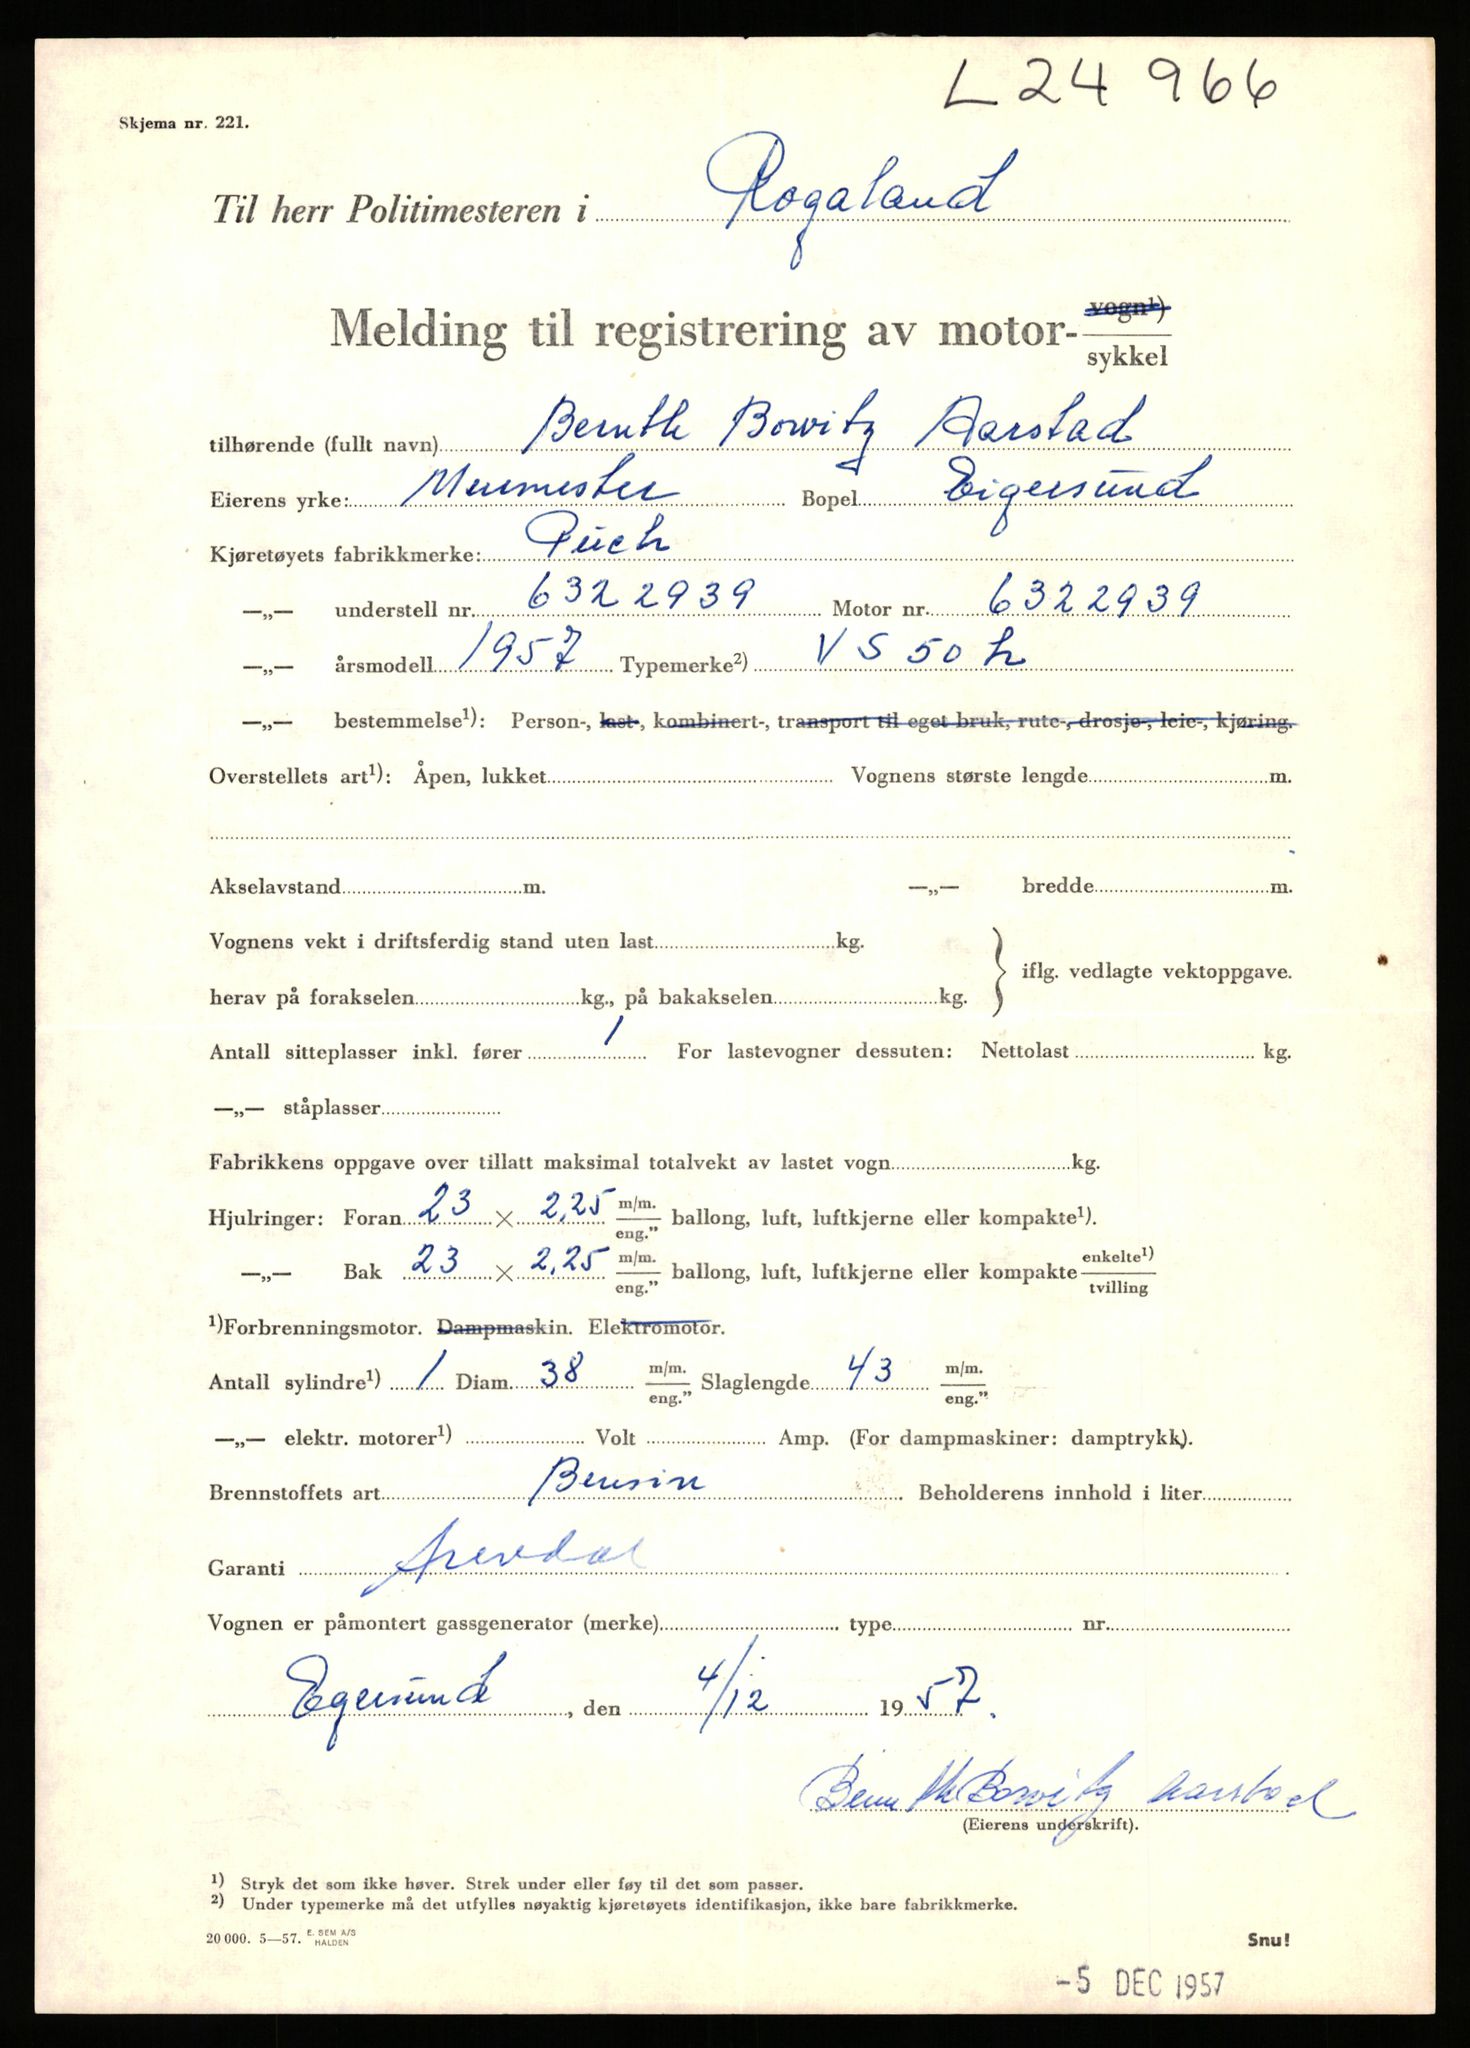 L 24 966
Skjema nr. 221.
Til herr Politimesteren i Rogaland
Melding til registrering av motor- vogn¹) sykkel
tilhørende (fullt navn) Bernth Bowitz Aarstad
Eierens yrke: Murmester Bopel Eigersund
Kjøretøyets fabrikkmerke: Puch
—„— understell nr. 6322939 Motor nr. 6322939
—„— årsmodell 1957 Typemerke²) VS 50 L
—„— bestemmelse¹): Person-, last-, kombinert-, transport til eget bruk, rute-, drosje-, leie-, kjøring.
Overstellets art¹): Åpen, lukket Vognens største lengde m.
Akselavstand m. —„— bredde m.
Vognens vekt i driftsferdig stand uten last kg.
iflg. vedlagte vektoppgave.
herav på forakselen kg., på bakakselen kg.
Antall sitteplasser inkl. fører 1 For lastevogner dessuten: Nettolast kg.
—„— ståplasser
Fabrikkens oppgave over tillatt maksimal totalvekt av lastet vogn kg.
Hjulringer: Foran 23 × 2,25 m/m. eng." ballong, luft, luftkjerne eller kompakte¹).
—„— Bak 23 × 2,25 m/m. eng." ballong, luft, luftkjerne eller kompakte enkelte¹) tvilling
¹)Forbrenningsmotor. Dampmaskin. Elektromotor.
Antall sylindre¹) 1 Diam. 38 m/m. eng." Slaglengde 43 m/m. eng."
—„— elektr. motorer¹) Volt Amp. (For dampmaskiner: damptrykk).
Brennstoffets art Bensin Beholderens innhold i liter
Garanti Arendal
Vognen er påmontert gassgenerator (merke) type nr.
Egersund, den 4/12 1957.
Bernth Bowitz Aarstad
(Eierens underskrift).
¹) Stryk det som ikke høver. Strek under eller føy til det som passer.
²) Under typemerke må det utfylles nøyaktig kjøretøyets identifikasjon, ikke bare fabrikkmerke.
20 000. 5—57. E. SEM A/S HALDEN
Snu!
-5 DEC 1957